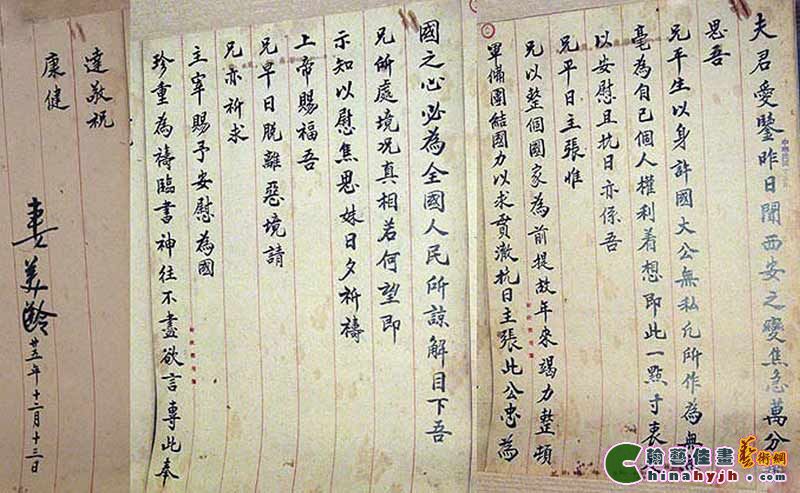 夫君愛鑒昨日聞西安之變焦急萬分
思吾
兄平生以身許國大公無私凡所作為無
毫為自己個人權利着想即此一點寸衷
以安慰且抗日亦係吾
兄平日主張惟
兄以整個國家為前提故年來竭力整頓
軍備團結國力以求貫澈抗日主張此公忠為
國之心必為全國人民所諒解目下吾
兄所處境況真相若何望即
示知以慰焦思妹日夕祈禱
上帝賜福吾
兄早日脫離惡境請
兄亦祈求
主宰賜予安慰為國
珍重為禱臨書神往不盡欲言專此奉
達敬祝
康健
妻美齡
廿五年十二月十三日
翰藝佳畫藝術網
Chinahyjh.com